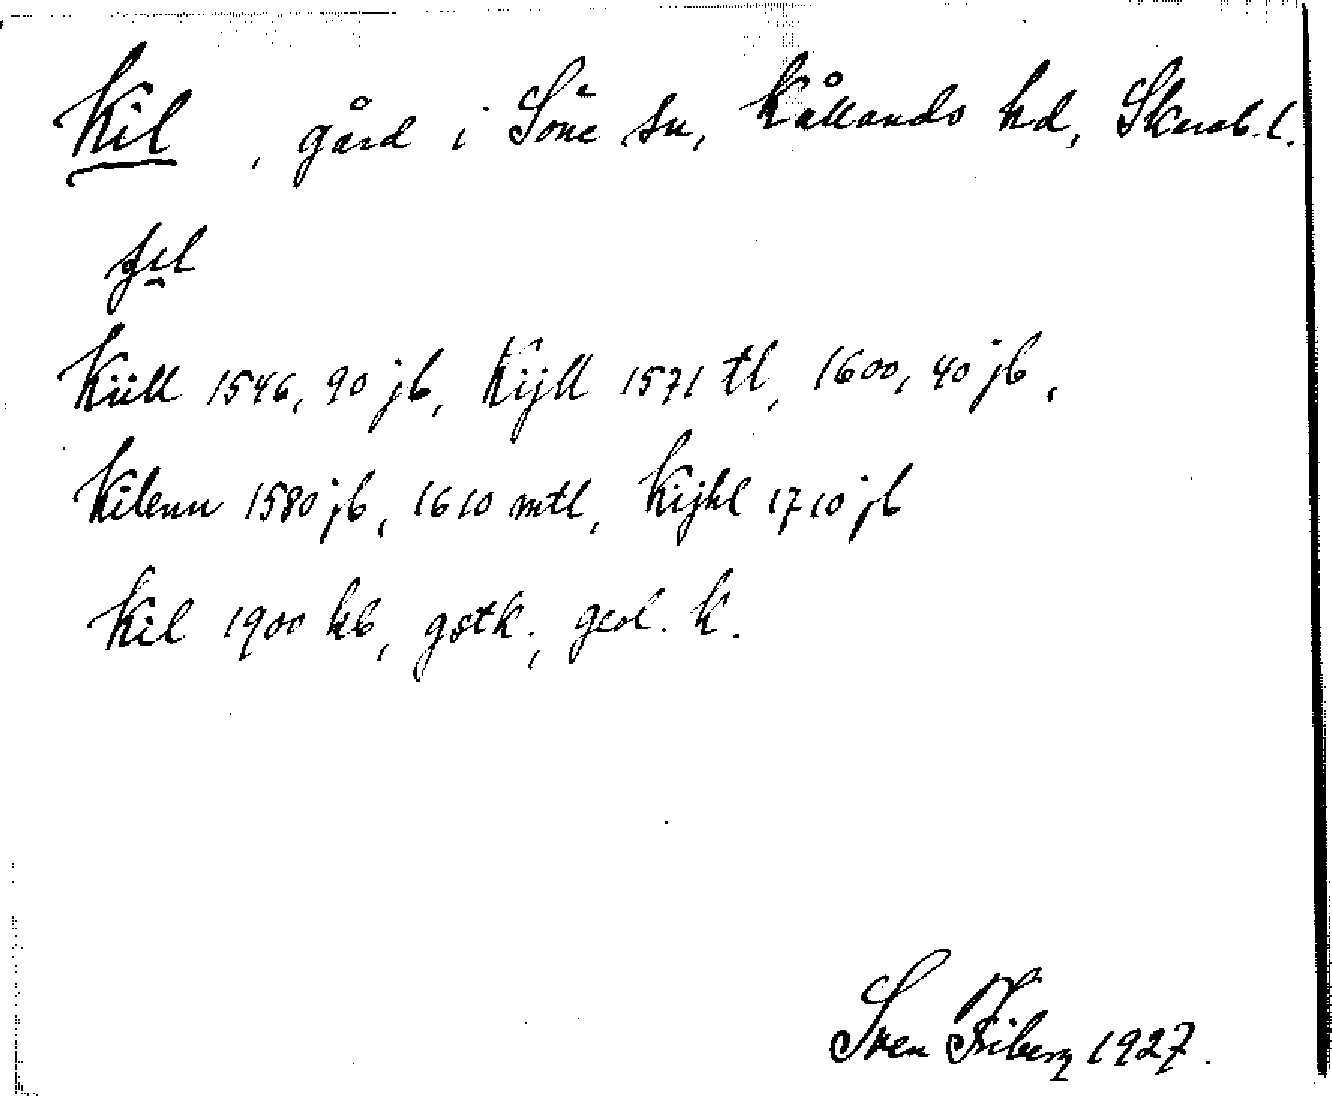 Kil, gård i Söne sn, Kållands hd, Skarab. l.
Küll 1546, 90 jb, Kijll 1571 tl, 1600, 40 jb,
Kilenn 1580 jb, 1610 mtl, Kijhl 1710 jb
Kil 1900 kb, gstk., geol. k.
Sven Friberg 1927.